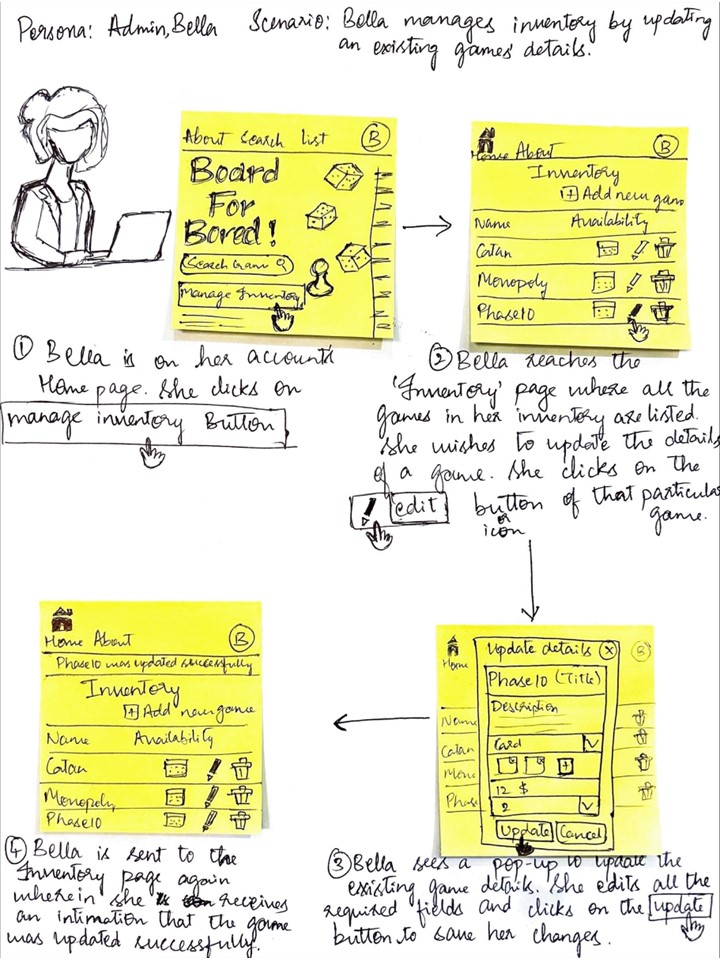 Persona: Admin, Bella Scenario: Bella manages inventory by updating
an existing games' details.
About Search list B
Board
For
Bored!
Search Game
Manage Inventory
Home About B
Inventory
+ Add new game
Name Availability
Catan
Monopoly
Phase10
1 Bella is on her account's
Home page. She clicks on
manage inventory Button
2 Bella reaches the
'Inventory' page where all the
games in her inventory are listed.
She wishes to update the details
of a game. She clicks on the
edit button of that particular
or
icon game.
Home B
Name
Catan
Mono
Phase
Update details X
Phase 10 (Title)
Description
Card
+
12 $
2
Update Cancel
3 Bella sees a pop-up to update the
existing game details. She edits all the
required fields and clicks on the update
button to save her changes.
Home About B
Phase10 was updated successfully
Inventory
+ Add new game
Name Availability
Catan
Monopoly
Phase10
4 Bella is sent to the
Inventory page again
wherein she receives
an intimation that the game
was updated successfully.